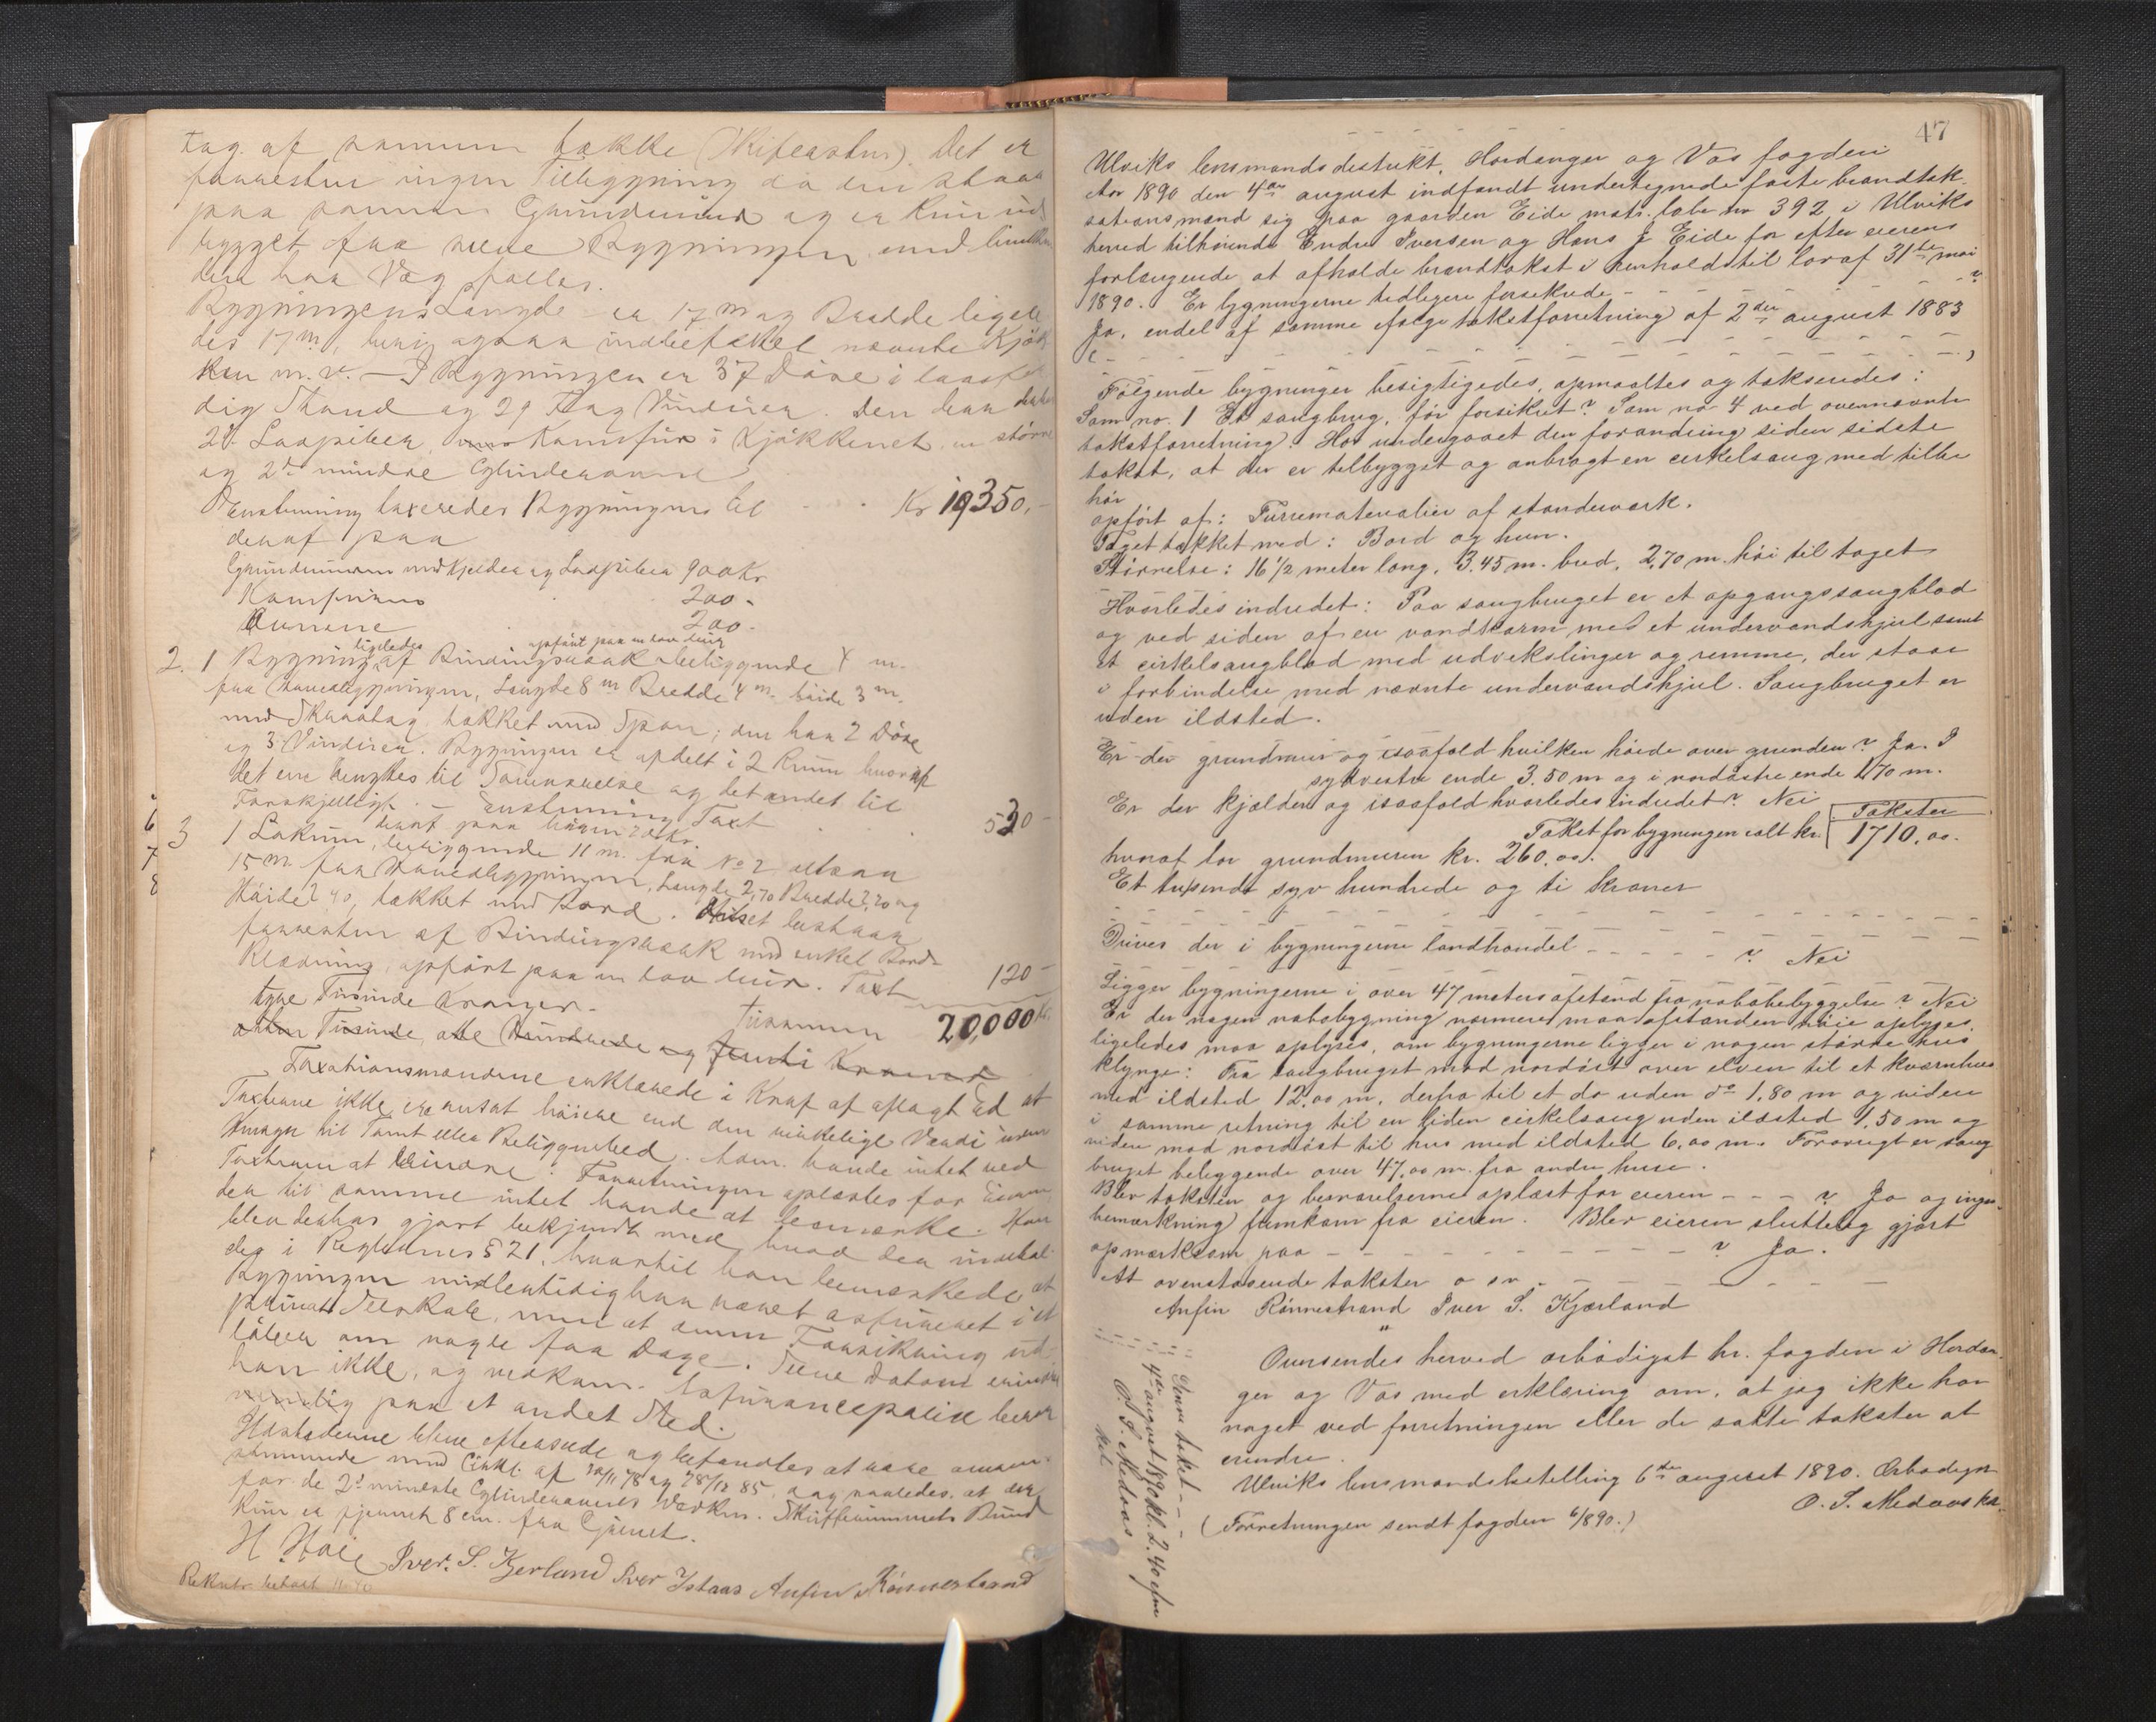 tag. af samme tække (Skifersten). Det er
forresten ingen Tilbygning da den staar
paa samme Grundmur og er kun ud
bygget fra selve Bygningen med
den har Væg fælles.
Bygningens Længde er 17 m og Bredde ligele
des 17 m, heri ogsaa indbefattet nævnte Kjøk
ken m. v. — I Bygningen er 37 Døre i laasfær
dig Stand og 29 Fag Vinduer. Den har
2de Laapiber, Komfur i Kjøkkenet, en større
og 2de mindre Cylinderovne
Enstemmig taxeredes Bygningen til Kr 19350,-
deraf paa
Grundmuren med Kjelder og Laapiber 900 Kr
Komfuren 200 -
Ovnene 200 -
ligeledes opført paa en lav Mur
2. 1 Bygning af Bindingsværk beliggende 4 m.
fra Hovedbygningen, Længde 8 m Bredde 4 m. høide 3 m.
med Skraatag tækket med Spon; den har 2 Døre
og 3 Vinduer. Bygningen er opdelt i 2 Rum hvoraf
det ene benyttes til og det andet til
Forskjelligt. — Enstemmig Taxt 530 -
deraf paa Muren 20 kr.
6
3 1 Lokum, beliggende 11 m. fra No 2 
7
15 m. fra Hovedbygningen, Længde 2,70 Bredde 2,20 og
8
Høide 2,40, tækket med Bord. Huset bestaar
forresten af Bindingsværk med enkel Bord-
klædning, opført paa en lav Mur. Taxt 120 -
tyve Tusinde Kroner. Tilsammen 20,000 Kr.
atten Tusinde, otte Hundrede og femti Kroner
Taxationsmændene erklærede i Kraf af aflagt Ed at
Taxterne ikke ere ansat høiere end den virkelige Værdi uden
Hensyn til Tomt eller Beliggenhed. hande intet ved
Taxterne at erindre. Forretningen oplæstes for Eieren
der til samme intet havde at bemærke. Han
blev derhos gjort bekjendt med, hvad der indehol
des i Reglernes § 21, hvortil han bemærkede, at
Bygningen midlertidig har været assureret i et
privat Selskab, men at denne Forsikring ud
løber om nogle faa Dage. Selve Datoen erindrer
han ikke, og vedkom. Assurancepolice beror
nemlig paa et andet Sted.
Ildstederne blive efterseede og befandtes at være overens
stemmende med Cirkl. af 30/11 78 og 28/12 85, dog saaledes, at der
for de 2de mindste Cylinderovnes Vedkm. Skuffrummets Bund
kun er fjernet 8 cm. fra Gulvet.
H. Hole Iver. S. Kjerland Iver Ystaas Anfin Rönnestrand
Rekvts betalt 11.40
47
Ulviks lensmandsdistrikt, Hardanger og Vos fogderi
Aar 1890 den 4de august indfandt undertegnede faste brandtak-
sationsmænd sig paa gaarden Eide matr. løbe no 392 i Ulviks
herred tilhørende Endre Iversen og Hans J Eide for efter eierens
forlangende at afholde brandtakst i henhold til lov af 31te mai
1890. Er bygningerne tidligere forsikrede - - - ?
Ja, endel af samme ifølge takstforretning af 2den august 1883
( - - - - - - - - - - - - - )
Følgende bygninger besigtigedes, opmaaltes og takseredes:
Som no. 1 Et saugbrug, før forsikret? Som no 4 ved ovennævnte
takstforretning. Har undergaaet den forandring siden sidste
takst, at der er tilbygget og anbragt en cirkelsaug med tilbe
hør
opført af: Furrematerialier af standerværk.
Taget tækket med: Bord og hun.
Størrelse: 16 1/2 meter lang, 3.45 m. bred, 2,70 m. høi til taget
Hvorledes indredet: Paa saugbruget er et opgangssaugblad
og ved siden af en vandkarm med et undervandshjul samt
et cirkelsaugblad med udvekslinger og remme, der staar
i forbindelse med nævnte undervandshjul. Saugbruget er
uden ildsted.
Er der grundmur og isaafald hvilken høide over grunden? Ja. I
sydvestre ende 3.50 m og i nordøstre ende 1.70 m.
Er der kjælder og isaafald hvorledes indredet? Nei
Takster
Takst for bygningen ialt kr. 1710,00.
hvoraf for grundmuren kr. 260,00.
Et tusende syv hundrede og ti kroner
Drives der i bygningerne landhandel - - - - - ? Nei
Ligger bygningerne i over 47 meters afstand fra nabobebyggelse? Nei
Er der nogen nabobygning nærmere maa afstanden høie oplyses,
ligeledes maa oplyses, om bygningerne ligger i nogen større hus
klynge: Fra saugbruget mod nordøst over elven til et kværnhus
med ildsted 12,00 m, derfra til et do uden do 1,80 m og videre
i samme retning til en liden cirkelsaug uden ildsted 1,50 m og
videre mod nordøst til hus med ildsted 6,00 m. Forøvrigt er saug
bruget beliggende over 47,00 m. fra andre huse.
Blev taksten og besvarelserne oplæst for eieren - - - ? Ja og ingen
bemærkning fremkom fra eieren. Blev eieren sluttelig gjort
opmærksom paa - - - - - - - - - ? Ja.
At ovenstaaende takster o s v. - - - - -
Anfin Rönnestrand Iver S. Kjærland
"
Oversendes herved ærbødigst hr. fogden i Hardan-
ger og Vos med erklæring om, at jeg ikke har
noget ved forretningen eller de satte takster at
erindre.
Ulviks lensmandsbestilling 6te august 1890. Ærbødigst
O. S. Medaas
(Forretningen sendt fogden 6/8 90.)
Denne takst - - -
4de august 1890 kl. 2.40 efm
O. S. Medaas